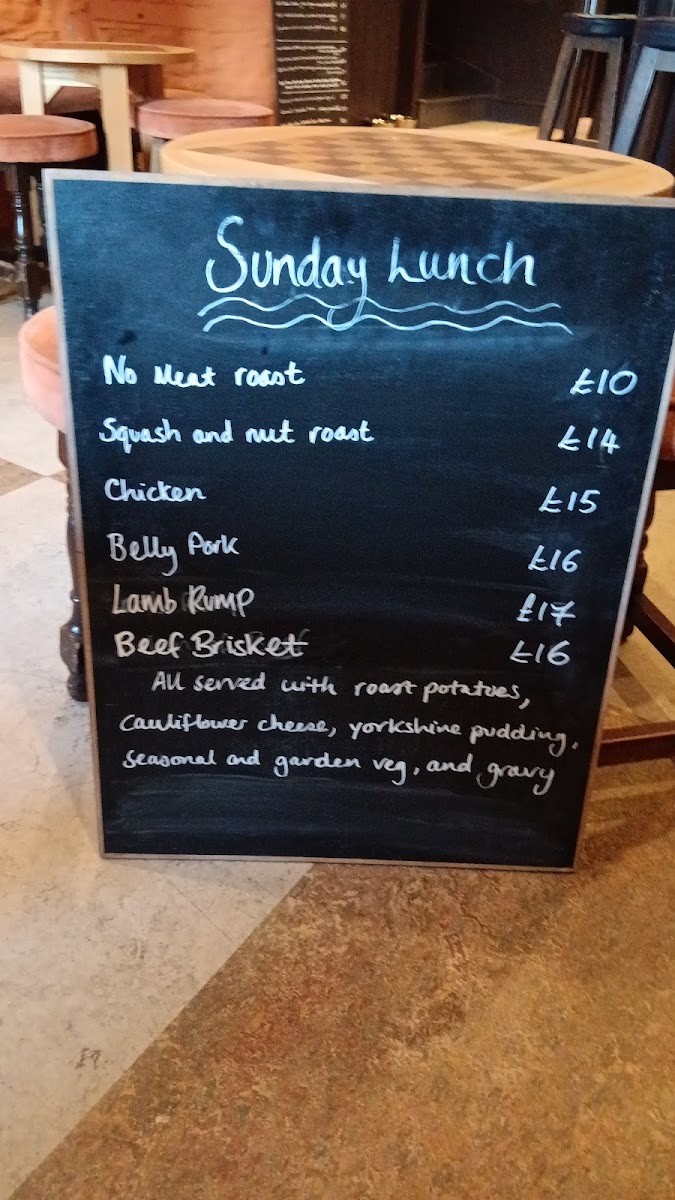 Sunday Lunch
No Meat roast £10
Squash and nut roast £14
Chicken £15
Belly Pork £16
Lamb Rump £17
Beef Brisket £16
All served with roast potatoes,
cauliflower cheese, yorkshire pudding,
seasonal and garden veg, and gravy